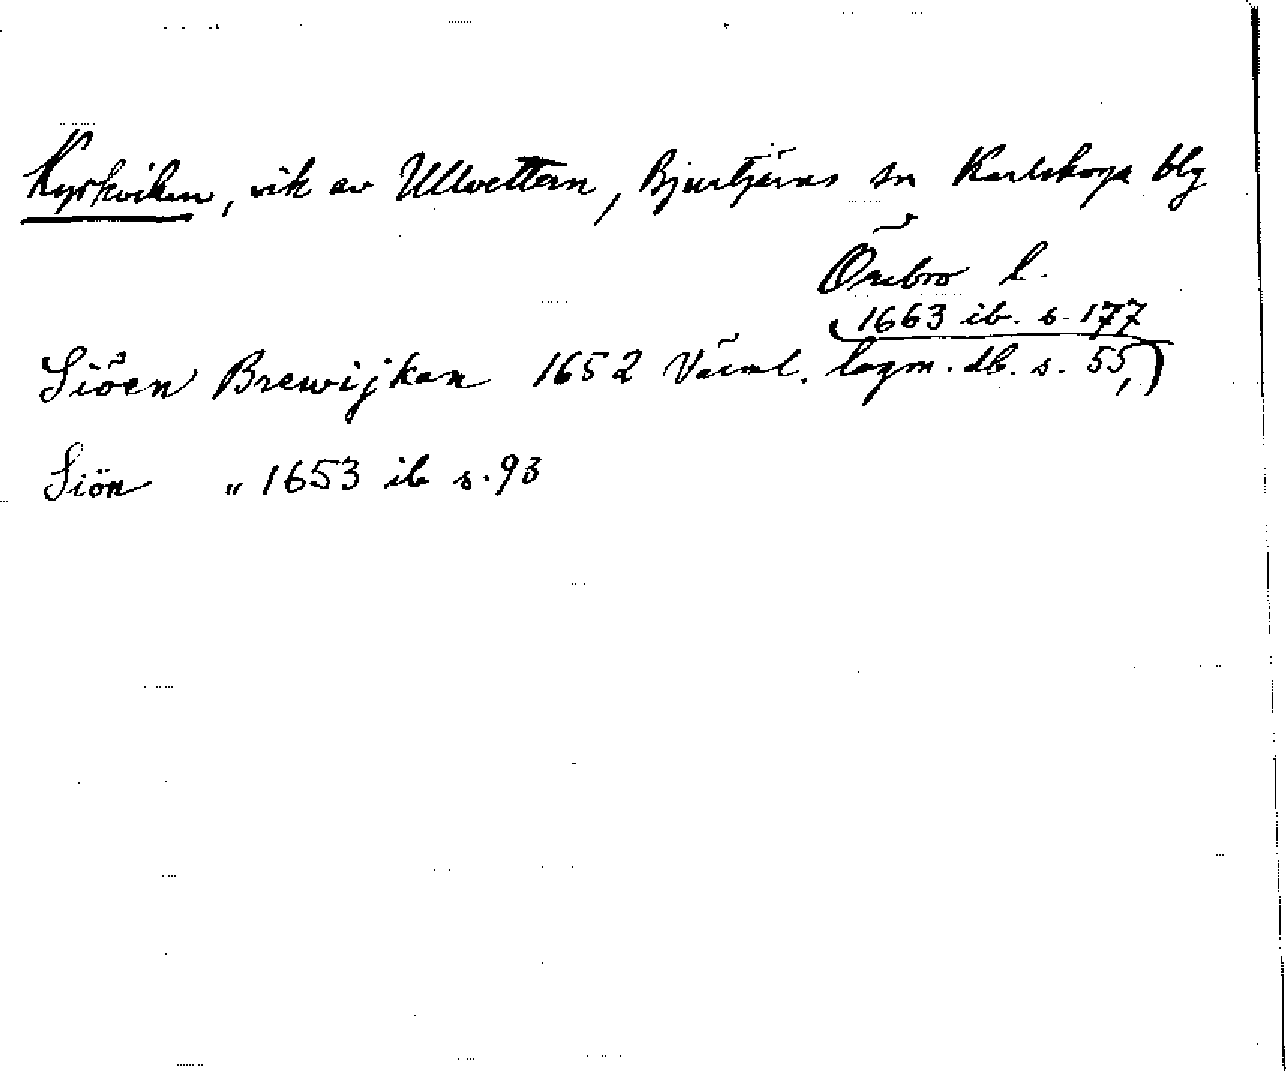 Kyrkviken, vik av Ullvettern, Bjurtjärns sn Karlskoga blg
Örebro l.
1663 ib. s. 177
Siöen Brewijkan 1652 Värml. lagm. db. s. 55,
Siön " 1653 ib s. 93